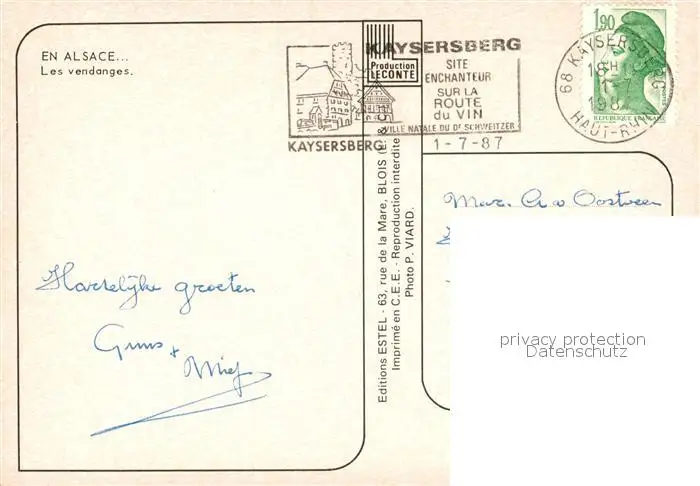 EN ALSACE...
Les vendanges.
Production
LECONTE
KAYSERSBERG
KAYSERSBERG
SITE
ENCHANTEUR
SUR LA
ROUTE
du VIN
VILLE NATALE DU Dr SCHWEITZER
1-7-87
1,90
REPUBLIQUE FRANÇAISE
68 KAYSERSBERG
18H
1987
HAUT-RHIN
Editions ESTEL - 63, rue de la Mare, BLOIS
Imprimé en C.E.E. - Reproduction interdite
Photo P. VIARD.
Hartelijke groeten
Guus +
Miej
Oostveen
privacy protection
Datenschutz